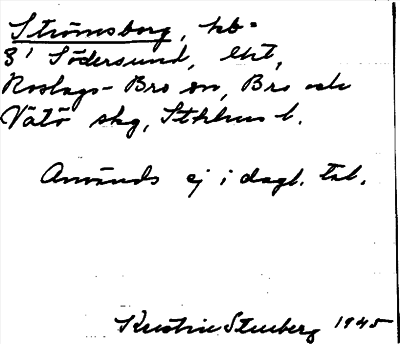 Strömsborg, hb=
8¹ Södersund, lht,
Roslags-Bro sn, Bro och
Vätö skg, Sthlms l.
Används ej i dagl. tal.
Kerstin Stenberg 1945